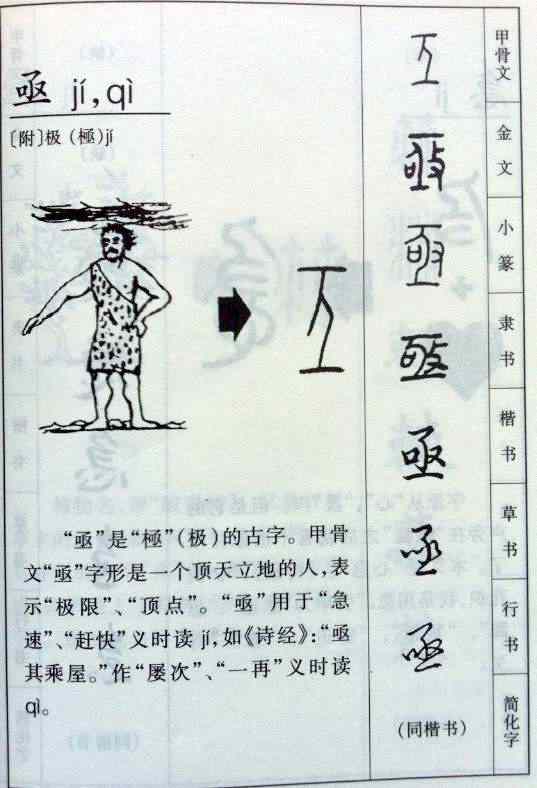 亟 jí,qì
〔附〕极（極）jí
“亟”是“極”(极)的古字。甲骨
文“亟”字形是一个顶天立地的人,表
示“极限”、“顶点”。“亟”用于“急
速”、“赶快”义时读 jí,如《诗经》:“亟
其乘屋。”作“屡次”、“一再”义时读
qì。
甲骨文
金文
小篆
隶书
楷书
亟
草书
亟
行书
亟
简化字
(同楷书)